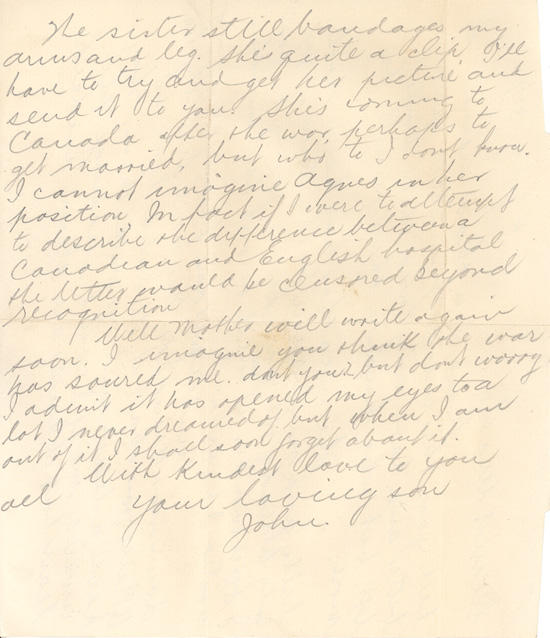 The sister still bandages my
arms and leg. She quite a clip I'll
have to try and get her picture and
send it to you. Shis coming to
Canada after the war, perhaps to
get married, but who to I dont know.
I cannot imagine Agnes in her
position. In fact if I were to attempt
to describe the difference between a
Canadian and English hospital
the letter would be censored beyond
recognition
Well Mother will write again
soon. I imagine you think the war
has soured me. dont you? but dont worry
I admit it has opened my eyes to a
lot I never dreamed of but when I am
out of it I shall soon forget about it.
With Kindest love to you
all your loving son
John.